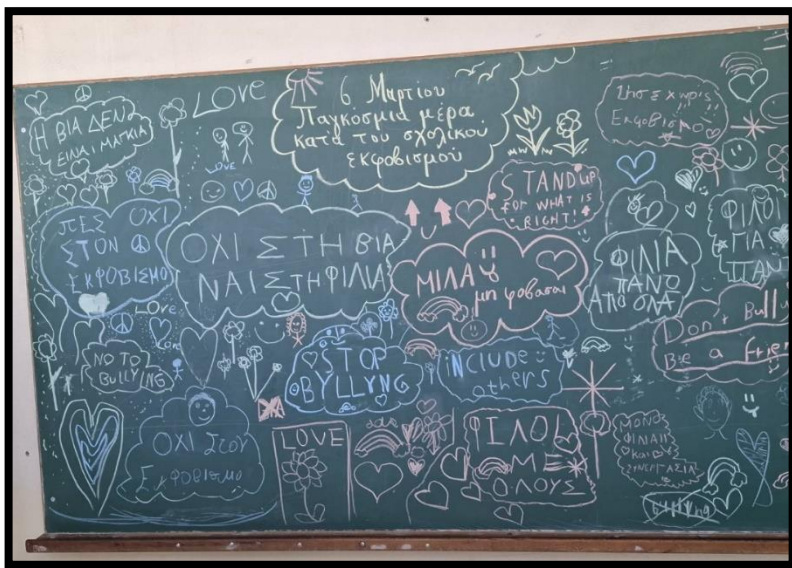 Η ΒΙΑ ΔΕΝ
ΕΙΝΑΙ ΜΑΓΚΙΑ
LOVE
6 Μαρτίου
Παγκόσμια μέρα
κατά του σχολικού
εκφοβισμού
Ζήσε χωρίς
Εκφοβισμό
LOVE
STAND UP
FOR WHAT IS
RIGHT!
ΠΕΣ ΟΧΙ
ΣΤΟΝ
ΕΚΦΟΒΙΣΜΟ
ΟΧΙ ΣΤΗ ΒΙΑ
ΝΑΙ ΣΤΗ ΦΙΛΙΑ
ΜΙΛΑ
μη φοβάσαι
ΦΙΛΙΑ
ΠΑΝΩ
ΑΠΟ ΟΛΑ
ΦΙΛΟΙ
ΓΙΑ
ΠΑΝΤ
LOve
NO TO
BULLYING
STOP
BYLLYNG
iNCLUDE
others
Don't Bully
Be a frien
ΟΧΙ Στον
Εκφοβισμο
LOVE
ΦΙΛΟΙ
ΜΕ
ΟΛΟΥΣ
ΜΟΝΟ
ΦΙΛΙΑ
ΚΑΙ
ΣΥΝΕΡΓΑΣΙΑ